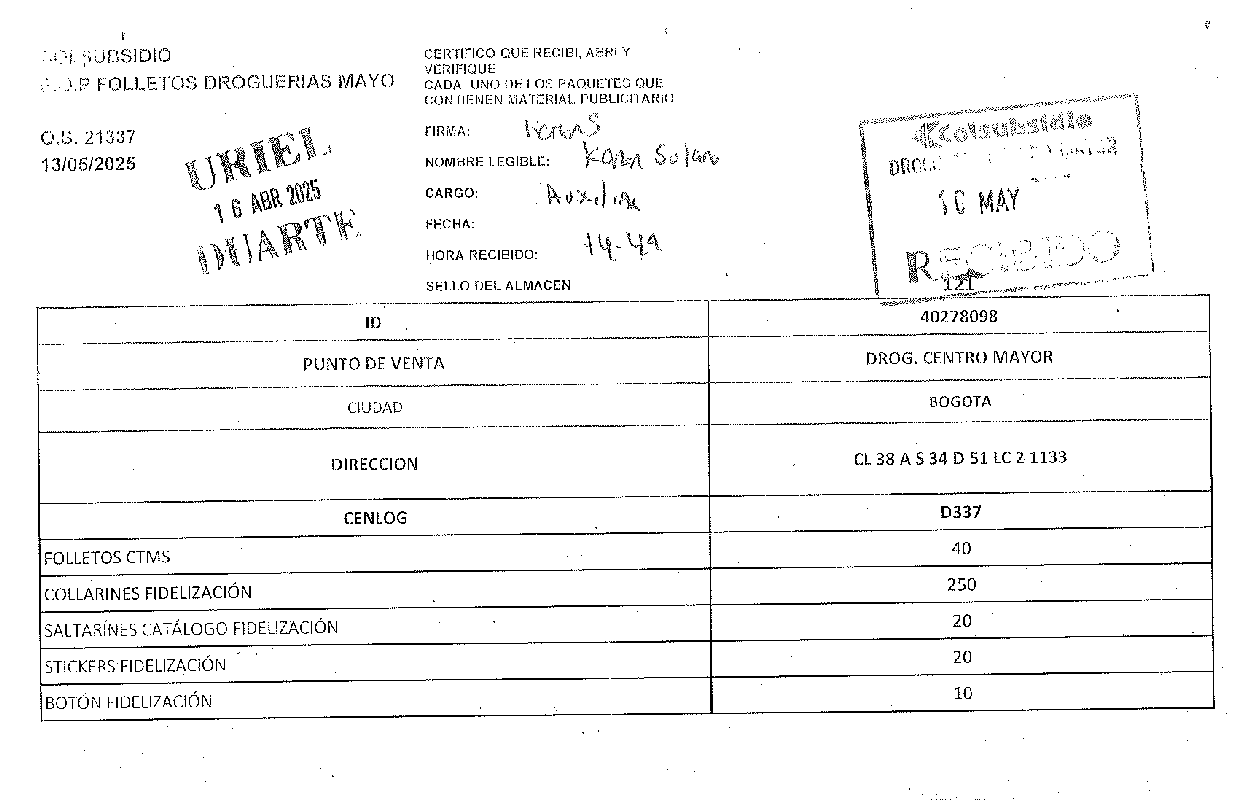 COLSUBSIDIO
P.O.P FOLLETOS DROGUERIAS MAYO
O.S. 21337
13/05/2025
URIEL
16 ABR 2025
DUARTE
CERTIFICO QUE RECIBI, ABRI Y
VERIFIQUE
CADA UNO DE LOS PAQUETES QUE
CONTIENEN MATERIAL PUBLICITARIO
FIRMA:
NOMBRE LEGIBLE: Karen Solano
CARGO: Auxiliar
FECHA:
HORA RECIBIDO: 14-49
SELLO DEL ALMACEN
Colsubsidio
MAY
RECIBIDO
121
ID 40278098
PUNTO DE VENTA DROG. CENTRO MAYOR
CIUDAD BOGOTA
DIRECCION CL 38 A S 34 D 51 LC 2 1133
CENLOG D337
FOLLETOS CTMS 40
COLLARINES FIDELIZACIÓN 250
SALTARÍNES CATÁLOGO FIDELIZACIÓN 20
STICKERS FIDELIZACIÓN 20
BOTÓN FIDELIZACIÓN 10